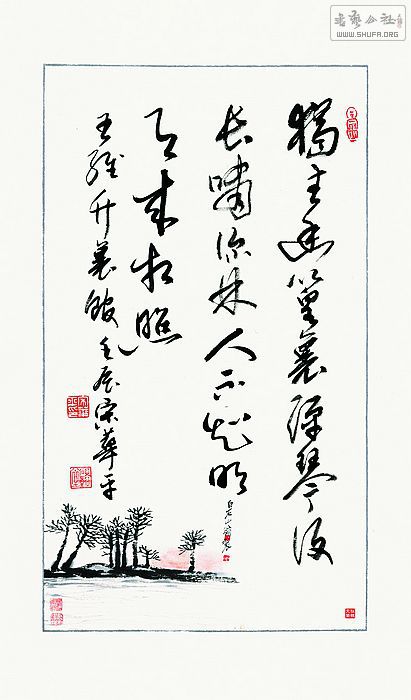 書藝公社
WWW.SHUFA.ORG
獨坐幽篁裏弹琴復
长嘯深林人不知明
月来相照
王维竹裏館 壬辰宋華平